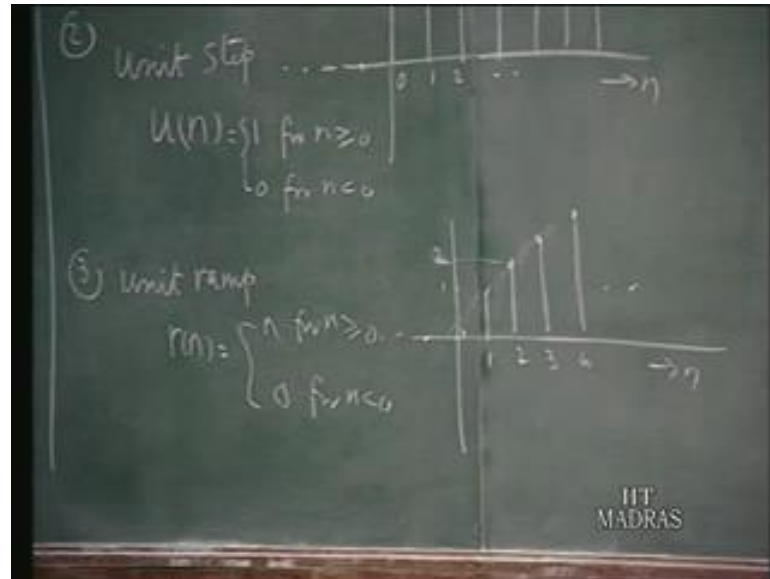 ②
Unit Step ....
0 1 2 .. →n
u(n)={1 for n≥0
0 for n<0
2
1
③ Unit ramp
r(n)={n for n≥0 ...
0 for n<0
1 2 3 4 →n
IIT
MADRAS